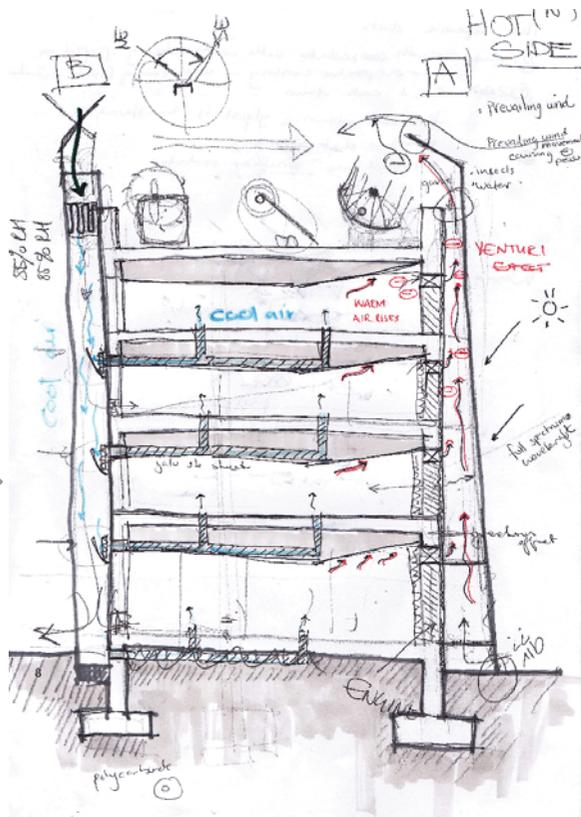 HOT (N)
SIDE
B
A
• Prevailing wind
Prevailing wind
movement
causing
• insects
• water
85% RH
85% RH
VENTURI
EFFECT
cool air
WARM
AIR RISES
cool air
full spectrum
wavelength
galv sb sheet
effect
8
ENGINE
polycarbonate